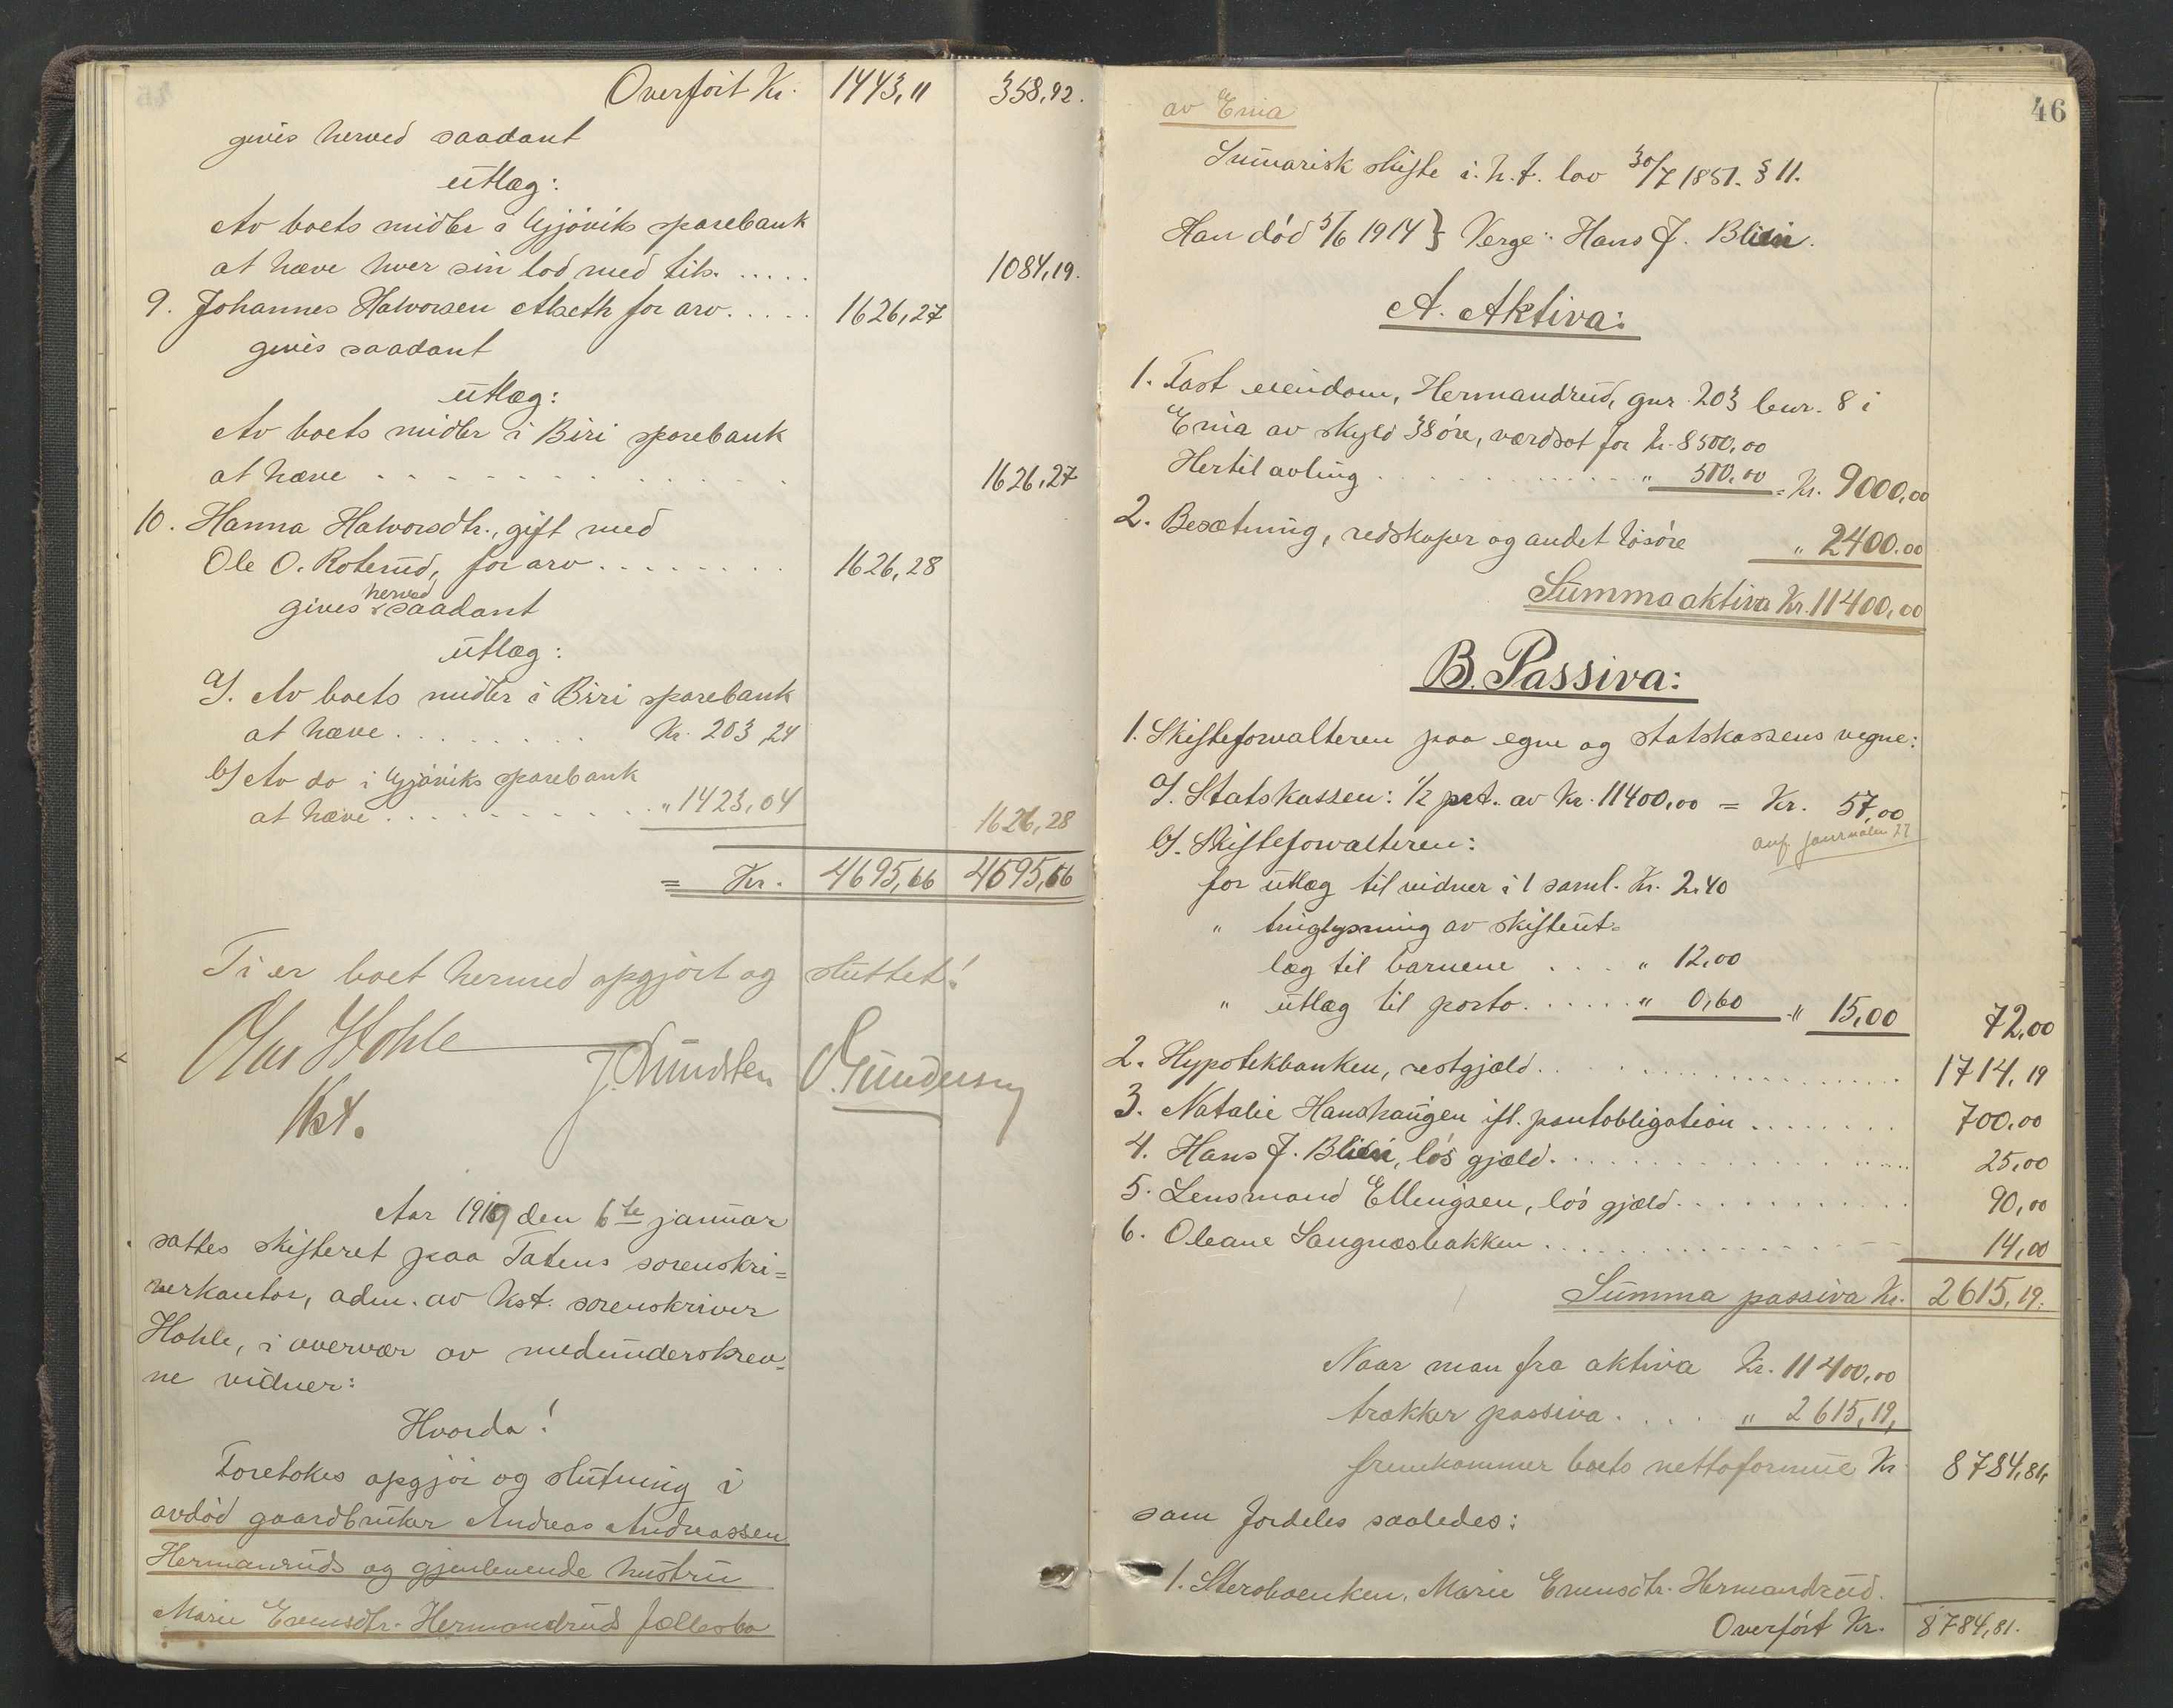 Overført Kr. 1443,11 358,92.
gives herved saadant
utlæg:
Av boets midler i Gjøviks sparebank
at hæve hver sin lod med tils. ..... 1084,19.
9. Johannes Halvorsen Alseth for arv..... 1626,27
gives saadant
utlæg:
Av boets midler i Biri sparebank
at hæve . . . . . . . . . . . . . 1626,27
10. Hanna Halvorsdtr., gift med
Ole O. Roterud, for arv........ 1626,28
gives herved saadant
utlæg:
a/. Av boets midler i Biri sparebank
at hæve......... Kr. 203,24
b/ Av do i Gjøviks sparebank
at hæve........... „ 1423,04 1626,28
= Kr. 4695,66 4695,66
Ti er boet hermed opgjort og sluttet!
Hohle
Kst.
Gundersen
Aar 1919 den 6te januar
sattes skifteret paa Totens sorenskri=
verkontor, adm. av kst. sorenskriver
Hohle, i overvær av medunderskrev=
ne vidner:
Hvorda!
Foretokes opgjør og slutning i
avdød gaardbruker Andreas Andreassen
Hermanruds og gjenlevende hustru
Marie Evensdtr. Hermandruds fællesbo
46
av Eina
Sumarisk skifte i. h. t. lov 30/7 1851. § 11.
Han død 5/6 1914 } Verge: Hans J. Blien.
A. Aktiva:
1. Fast eiendom, Hermandrud, gnr. 203 bnr. 8 i
Eina av skyld 38 øre, værdsat for Kr. 8500,00
Hertil avling . . . . . . . . . . „ 500,00 = Kr. 9000,00
2. Besætning, redskaper og andet løsøre „ 2400.00
Summa aktiva Kr. 11400,00
B. Passiva:
1. Skifteforvalteren paa egne og statskassens vegne:
a/. Statskassen: 1/2 pct. av Kr. 11400,00 = Kr. 57,00
anf. journalen 27
b/. Skifteforvalteren:
for utlæg til vidner i 1 saml. Kr. 2.40
„ tinglysning av skifteut=
læg til barnene . . . . „ 12,00
„ utlæg til porto...... „ 0,60 = „ 15,00 72,00
2. Hypotekbanken, restgjæld. . . . . . . . . . 1714,19
3. Natalie Hanshaugen ifl. pantobligation ........ 700.00
4. Hans J. Blien, løs gjæld. . . . . . . . . . . 25,00
5. Lensmand Ellingsen, løs gjæld. . . . . . . . . 90,00
6. Oleane Langnæsbakken . . . . . . . . . . . 14,00
Summa passiva Kr. 2615,19.
Naar man fra aktiva Kr. 11400,00
trækker passiva..... „ 2615,19,
fremkommer boets nettoformue Kr. 8784,81,
som fordeles saaledes:
1. Sterboenken, Marie Evensdtr. Hermandrud.
Overført Kr. 8784,81.